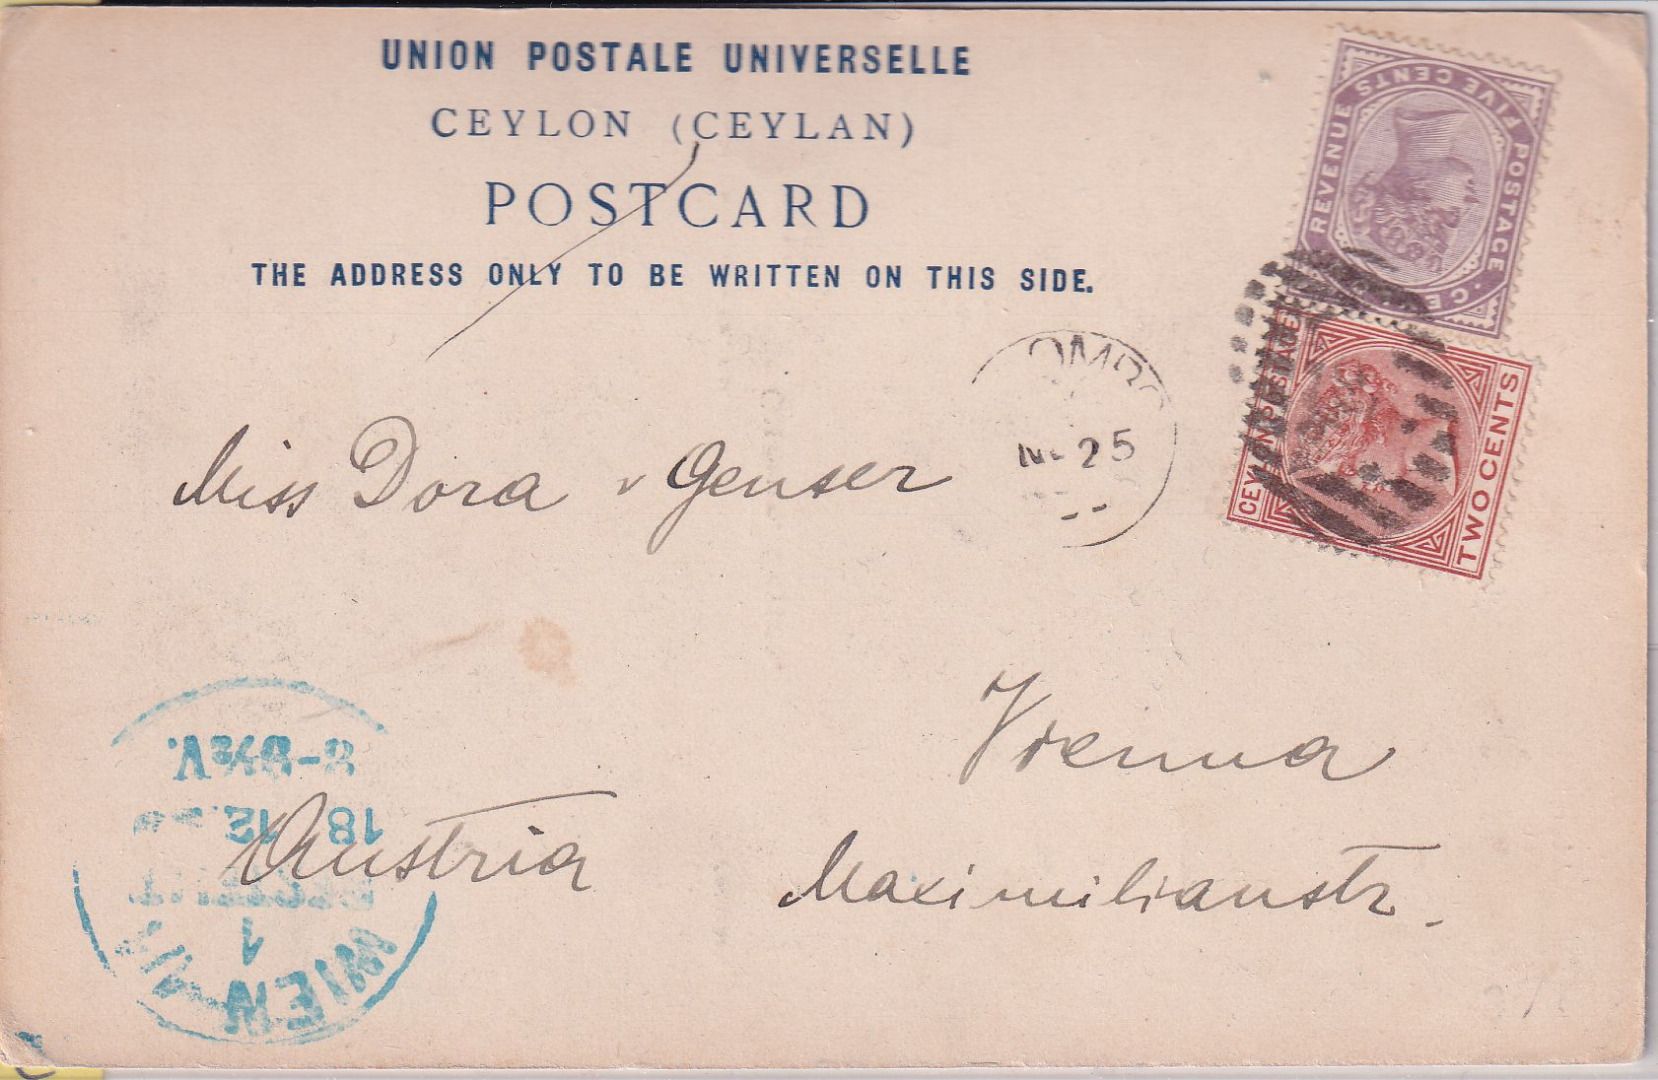 UNION POSTALE UNIVERSELLE
CEYLON (CEYLAN)
POSTCARD
THE ADDRESS ONLY TO BE WRITTEN ON THIS SIDE.
REVENUE FIVE CENTS POSTAGE
CEYLON POSTAGE
TWO CENTS
OMB
25
Miss Dora v Genser
Vienna
Maximilianstr.
Austria
WIEN
1
18 12